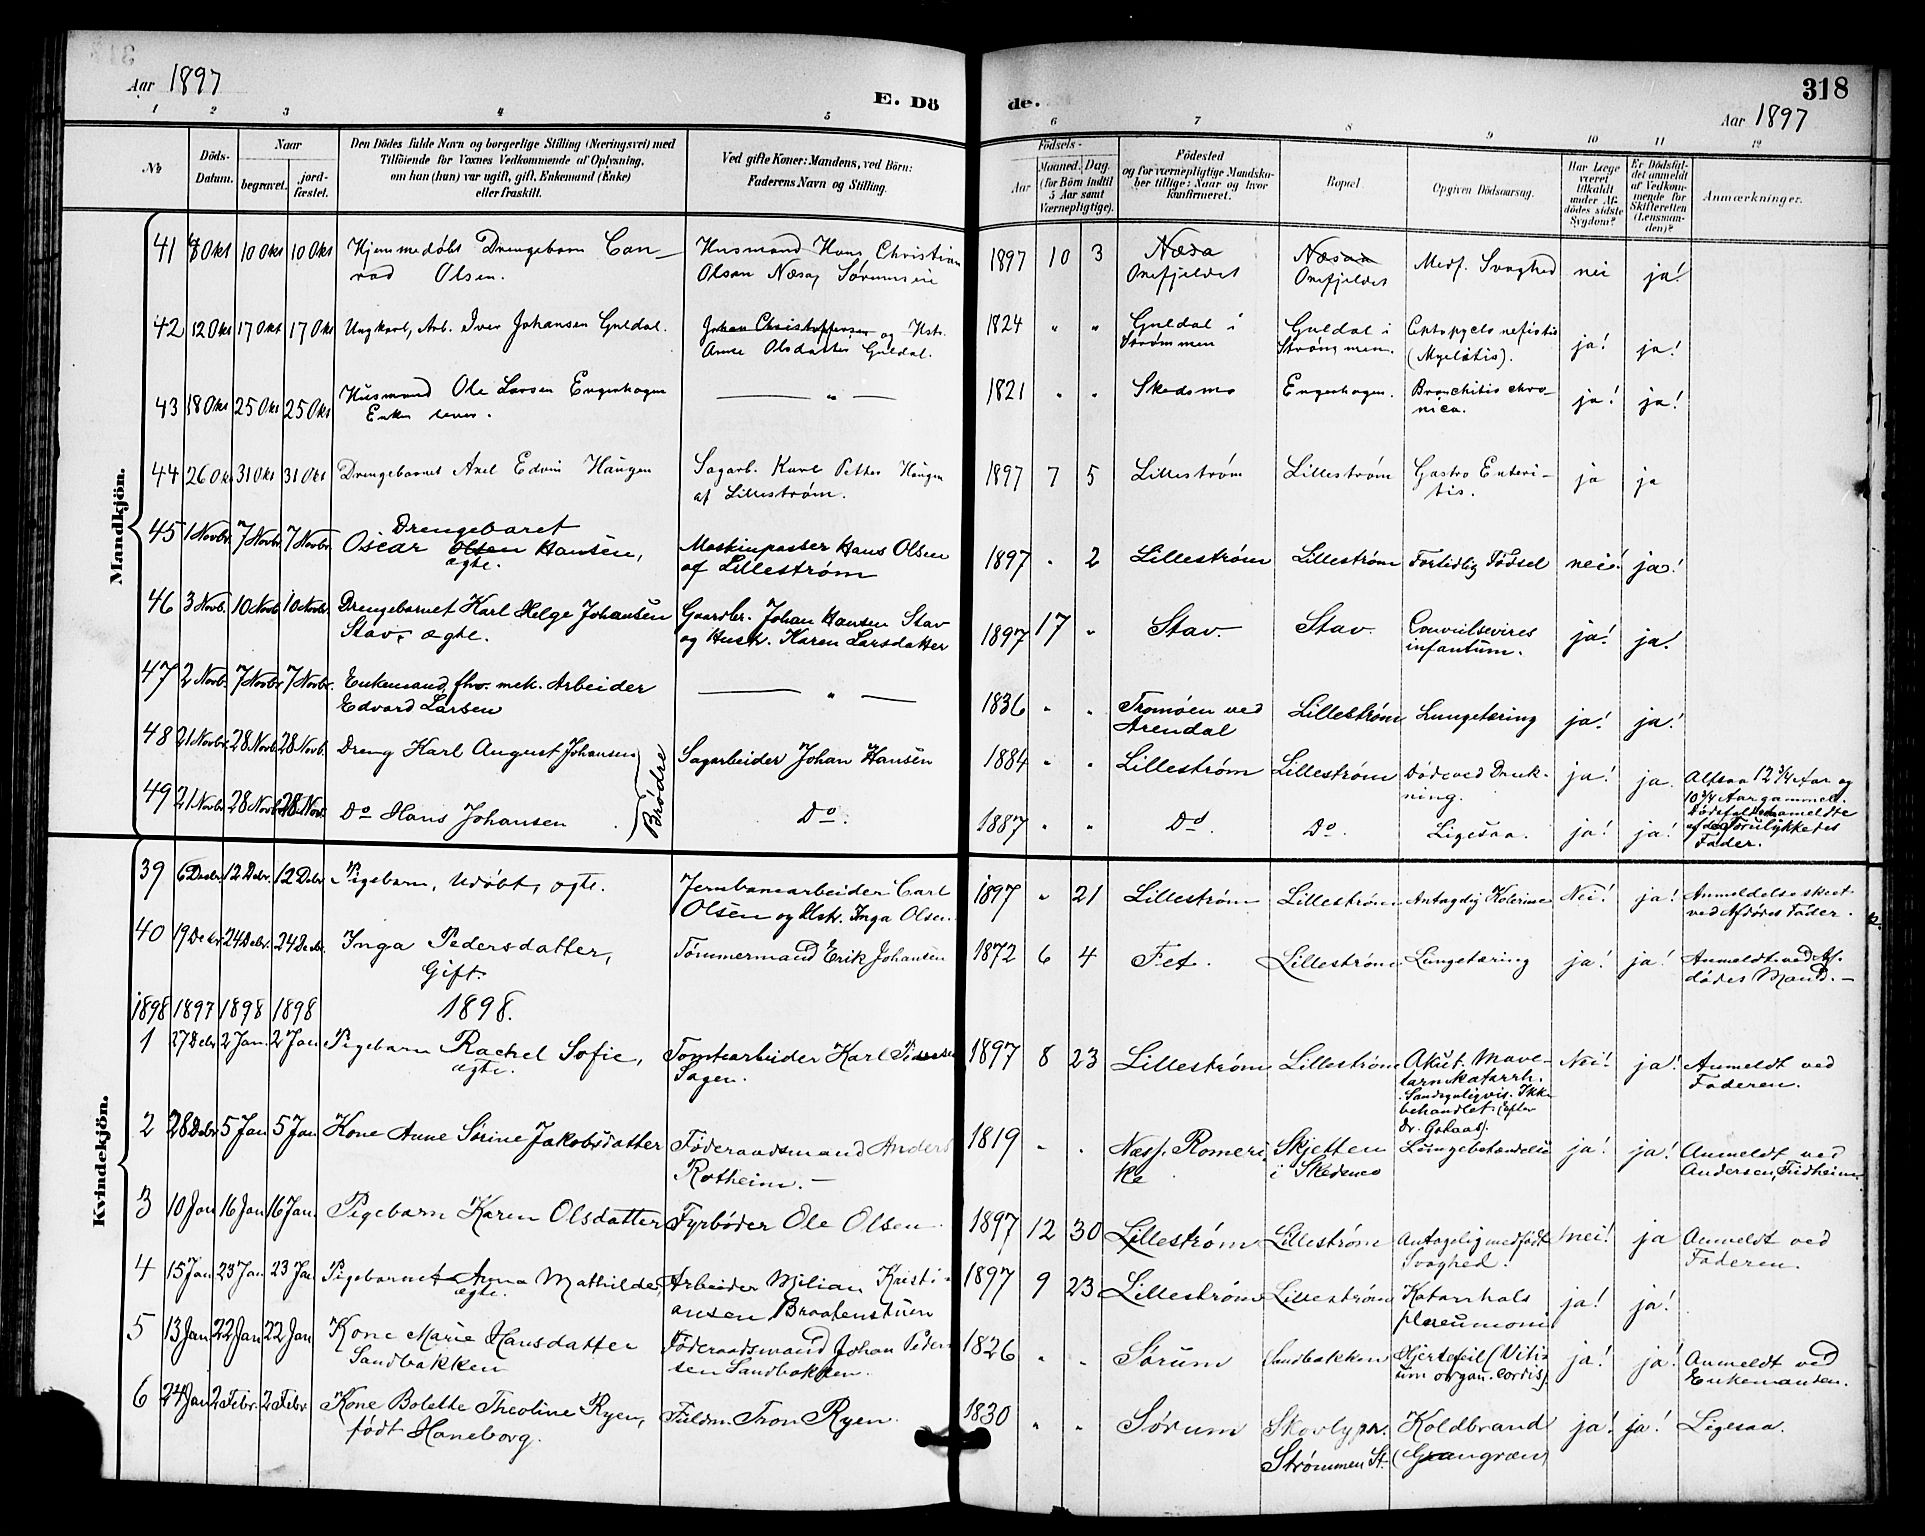 Aar 1897
E. Dö
de.
318
Aar 1897
1 2 3 4 5 6 7 8 9 10 11 12
No
Döds-
Datum.
Naar
begravet.
jord-
fæstet.
Den Dödes fulde Navn og borgerlige Stilling (Næringsvei) med
Tilföiende for Voxnes Vedkommende af Oplysning,
om han (hun) var ugift, gift, Enkemand (Enke)
eller fraskilt.
Ved gifte Koner: Mandens, ved Börn:
Faderens Navn og Stilling.
Födsels-
Aar
Maaned. Dag.
(for Börn indtil
5 Aar samt
Værnepligtige).
Födested
og for værnepligtige Mandska-
ber tillige: Naar og hvor
konfirmeret.
Bopæl.
Opgiven Dödsaarsag.
Har Læge
været
tilkaldt
under Af-
dödes sidste
Sygdom?
Er Dödsfal-
det anmeldt
af Vedkom-
mende for
Skifteretten
(Lensman-
den)?
Anmærkninger.
Mandkjön.
41 8 Okt 10 Okt 10 Okt Hjemmedøbt Drengebarn Con-
rad Olsen.
Husmand Hans Christian
Olsen Næsa, Sørumseie
1897 10 3 Næsa
Onefjeldet
Næsa
Onefjeldet
Medf. Svaghed nei ja!
42 12 Okt 17 Okt 17 Okt Ungkarl, Arb. Iver Johansen Guldal.
Johan Christophersen og Hstr.
Anne Olsdatter Guldal.
1824 " " Guldal i
Strømmen
Guldal i
Strømmen.
(Myelitis). ja! ja!
43 18 Okt 25 Okt 25 Okt Husmand Ole Larsen Engerhagen
Enke lever.
— " —
1821 " " Skedsmo Engerhagen. Bronchitis chro-
nica. ja! ja!
44 26 Okt 31 Okt 31 Okt Drengebarnet Axel Edvin Haugen
Sagarb. Karl Petter Haugen
af Lillestrøm.
1897 7 5 Lillestrøm Lillestrøm Gastro Enteri-
tis. ja ja
45 1 Novbr. 7 Novbr. 7 Novbr. Drengebaret
Oscar Olsen Hansen,
ægte.
Maskinpasser Hans Olsen
af Lillestrøm
1897 " 2 Lillestrøm Lillestrøm Fortidlig Fødsel nei! ja!
46 3 Novb. 10 Novb. 10 Novb. Drengebarnet Karl Helge Johansen
Stav, ægte.
Gaardbr. Johan Hansen Stav
og Hustr. Karen Larsdatter
1897 17 " Stav. Stav.
infantum. ja! ja!
47 2 Novb. 7 Novbr 7 Novbr. Enkemand, fhv. mek. Arbeider
Edvard Larsen
— " —
1836 " " Tromøen ved
Arendal
Lillestrøm Lungetæring ja! ja!
48 21 Novbr. 28 Novb. 28 Novb. Dreng Karl August Johansen
Brødre
Sagarbeider Johan Hansen
1884 " " Lillestrøm Lillestrøm Døde ved Druk-
ning. ja! ja. Altsaa 12 3/4 Aar og
10 3/4 Aar gammel.
49 21 Novbr. 28 Novb. 28 Nov. Do Hans Johansen
Do.
1887 " " Do. Do. Ligesaa. ja! ja!
Dødsfaldet anmeldte
af de Forulykkedes
Fader.
Kvindekjön.
39 6 Decbr. 12 Debr. 12 Debr. Pigebarn, Udøbt, ægte.
Jernbanearbeider Carl
Olsen og Hstr. Inga Olsen.
1897 " 21 Lillestrøm Lillestrøm Antagelig Kolerine Nei! ja! Anmeldelse skeet
ved Afdødes Fader.
40 19 Debr. 24 Debr. 24 Decbr. Inga Pedersdatter,
Gift.
Tømmermand Erik Johansen
1872 6 4 Fet. Lillestrøm. Lungetæring ja! ja! Anmeldt ved Af-
dødes Mand. —
1898 1897 1898 1898 1898.
1 27 Debr 2 Jan. 2 Jan Pigebarn Rachel Sofie,
ægte.
Tomtearbeider Karl Pedersen
Sagen.
1897 8 23 Lillestrøm Lillestrøm Akut. Mave-
tarmkatarrh.
Sandsynligvis. Ikke
behandlet (efter
Nei! ja! Anmeldt ved
Faderen.
2 28 Debr 5 Jan 5 Jan Kone Anne Sørine Jakobsdatter
Føderaadsmand Anders
Rotheim. —
1819 " " Næs p. Romeri
ke
Skjetten
i Skedsmo
Lungebetændelse ja! ja! Anmeldt ved
Andersen, Fridheim
3 10 Jan 16 Jan 16 Jan. Pigebarn Karen Olsdatter
Fyrbøder Ole Olsen.
1897 12 30 Lillestrøm Lillestrøm Antagelig medfødt
Svaghed. nei! ja Anmeldt ved
Faderen.
4 15 Jan 23 Jan 23 Jan Pigebarnet Anna Mathilde,
ægte.
Arbeider Milian Kristi-
ansen Braatenstuen
1897 9 23 Lillestrøm Lillestrøm Katarrhals
pneumoni ja! ja!
5 13 Jan 22 Jan 22 Jan Kone Marie Hansdatter
Sandbakken
Føderaadsmand Johan Peder-
sen Sandbakken.
1826 " " Sørum Sandbakken Hjertefeil (Viti-
um organ. cordis). ja! ja! Anmeldt ved
Enkemanden.
6 24 Jan 2 Febr. 2 Febr. Kone Bolette Theoline Ryen,
født Haneborg.
Fuldm. Tron Ryen.
1830 " " Sørum Skovly pr.
Strømmen St.
Koldbrand
(Gangræn) ja! ja! Ligesaa.